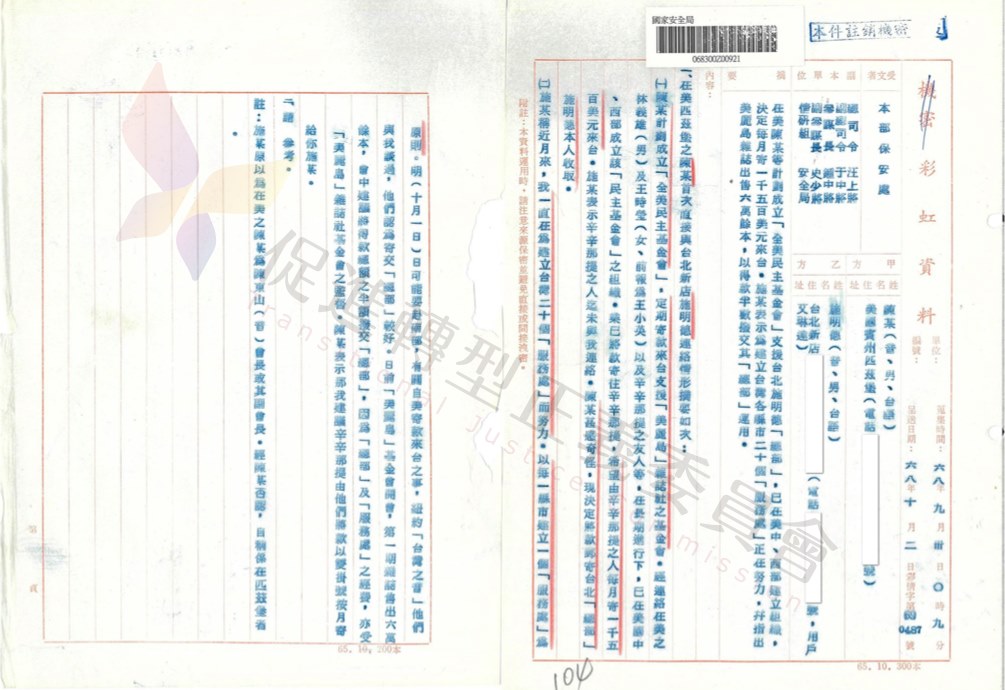 國家安全局
068300Z00921
本件註銷機密
機密
彩虹資料
單位：
編號：
蒐集時間：六八年九月卅日〇時九分
呈送日期：六八年十月二日彰情字第
0487號
受文者
副本單位
本部保安處
總司令 汪上將
副總司令 于中將
參謀長
副參謀長 史少將
安全局
甲方
姓名住址
陳某（音、男、台語）
美國賓州匹茲堡（電話
號）
乙方
姓名住址
施明德（音、男、台語）
台北新店
（電話
號，用戶
艾琳達）
摘要
在美陳某等計劃成立「全美民主基金會」支援台北施明德「總部」，已在美中、西部建立組織，
決定每月寄一千五百美元來台。施某表示為建立台灣各縣市二十個「服務處」正在努力，并指出
美麗島雜誌出售六萬餘本，以得款半數撥交其「總部」運用。
內容：
一、在美匹茲堡之陳某首次直接與台北新店施明德連絡情形摘要如次：
㈠陳某計劃成立「全美民主基金會」，定期寄款來台支援「美麗島」雜誌社之基金會。經連絡在美之
林義雄（男）及王時瑩（女、前報為王小英）以及辛辛那提之友人等，在長期進行下，已在美國中
、西部成立該「民主基金會」之組織。樂已將款寄往辛辛那提，希望由辛辛那提之人每月寄一千五
百美元來台。施某表示辛辛那提之人迄未與我連絡。陳某甚感奇怪，現決定將款郵寄台北「總部」
施明德本人收取。
㈡施某稱近月來，我一直在為建立台灣二十個「服務處」而努力。以每一縣市建立一個「服務處」為
附註：本資料運用時，請注意來源保密並避免直接或間接洩密。
65.10.300本
104
原則。明（十月一日）日可能要赴總部，有關自美寄款來台之事，紐約「台灣之音」他們
與我談過，他們認為寄交「總部」較好。日前「美麗島」基金會開會，第一期雜誌售出六萬
餘本，會中
「總部」，因為「總部」及「服務處」之經費，亦受
「美麗島」雜誌社基金會之監督。陳某表示那我建議辛辛那提由他們將款以雙掛號按月寄
給你施某。
二、請 參考。
註：施某原以為在美之陳某為陳東山（音）會長或其副會長。經陳某否認，自稱係在匹茲堡者
。
第 頁
65.10.200本
促進轉型正義委員會
Transitional Justice Commission